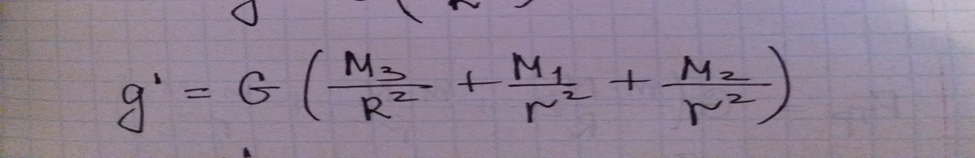 g' = G ( M₃/R² + M₁/r² + M₂/r² )